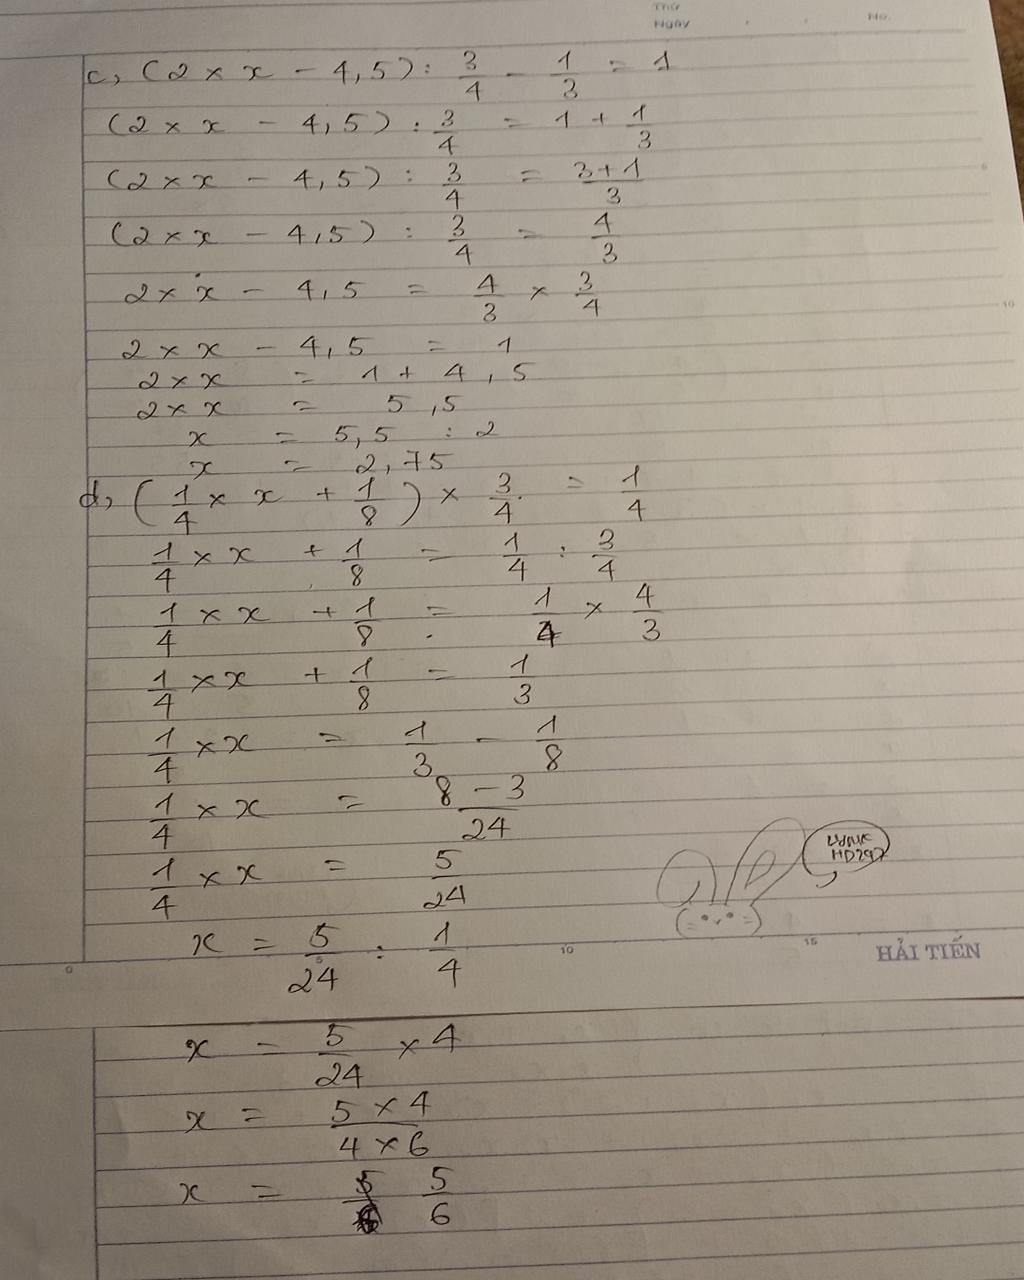 Thứ
Ngày No.
c, (2 × x − 4,5) : 3/4 − 1/3 = 1
(2 × x − 4,5) : 3/4 = 1 + 1/3
(2 × x − 4,5) : 3/4 = (3+1)/3
(2 × x − 4,5) : 3/4 = 4/3
2 × x − 4,5 = 4/3 × 3/4
2 × x − 4,5 = 1
2 × x = 1 + 4,5
2 × x = 5,5
x = 5,5 : 2
x = 2,75
d, (1/4 × x + 1/8) × 3/4 = 1/4
1/4 × x + 1/8 = 1/4 : 3/4
1/4 × x + 1/8 = 1/4 × 4/3
1/4 × x + 1/8 = 1/3
1/4 × x = 1/3 − 1/8
1/4 × x = (8 − 3)/24
1/4 × x = 5/24
x = 5/24 : 1/4
HẢI TIẾN
x = 5/24 × 4
x = (5 × 4)/(4 × 6)
x = 5/6